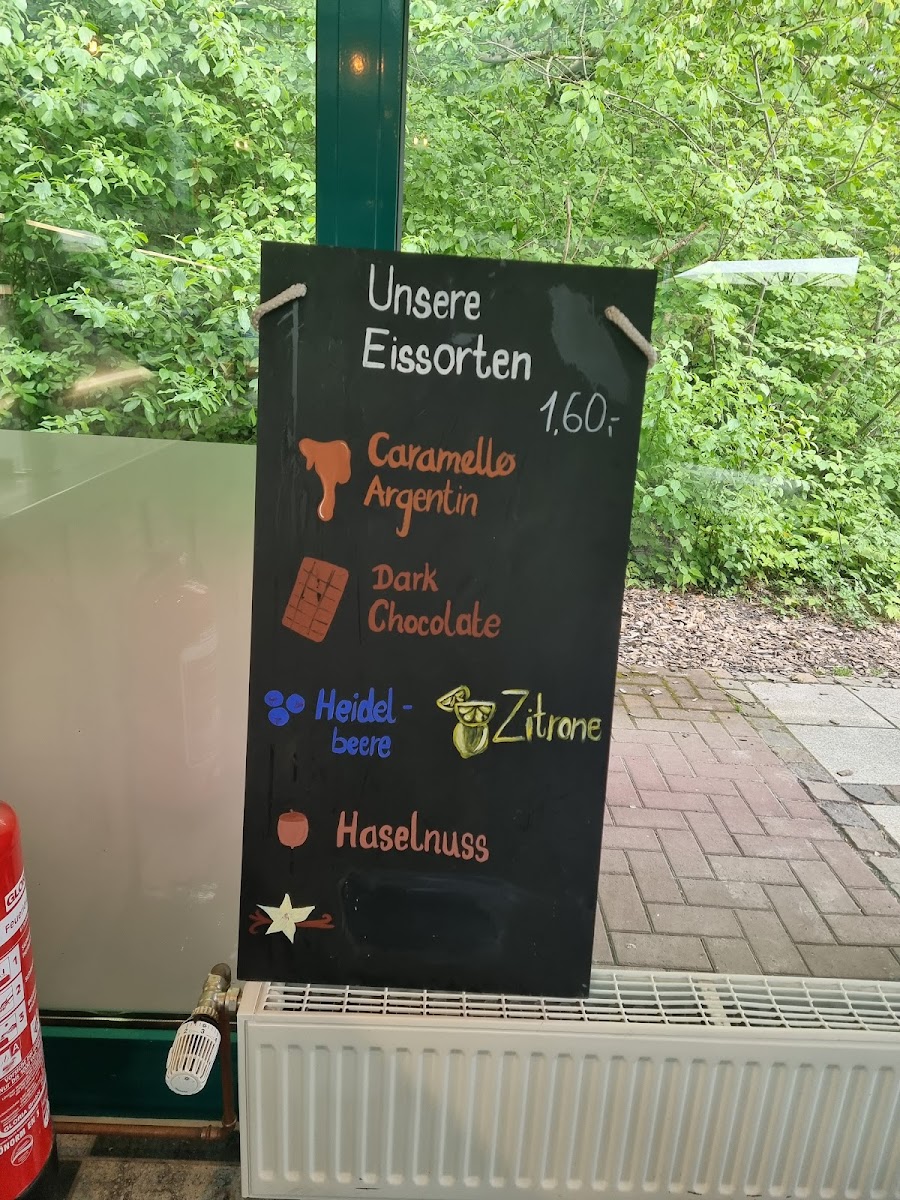 Unsere
Eissorten
1,60,-
Caramello
Argentin
Dark
Chocolate
Heidel-
beere
Zitrone
Haselnuss